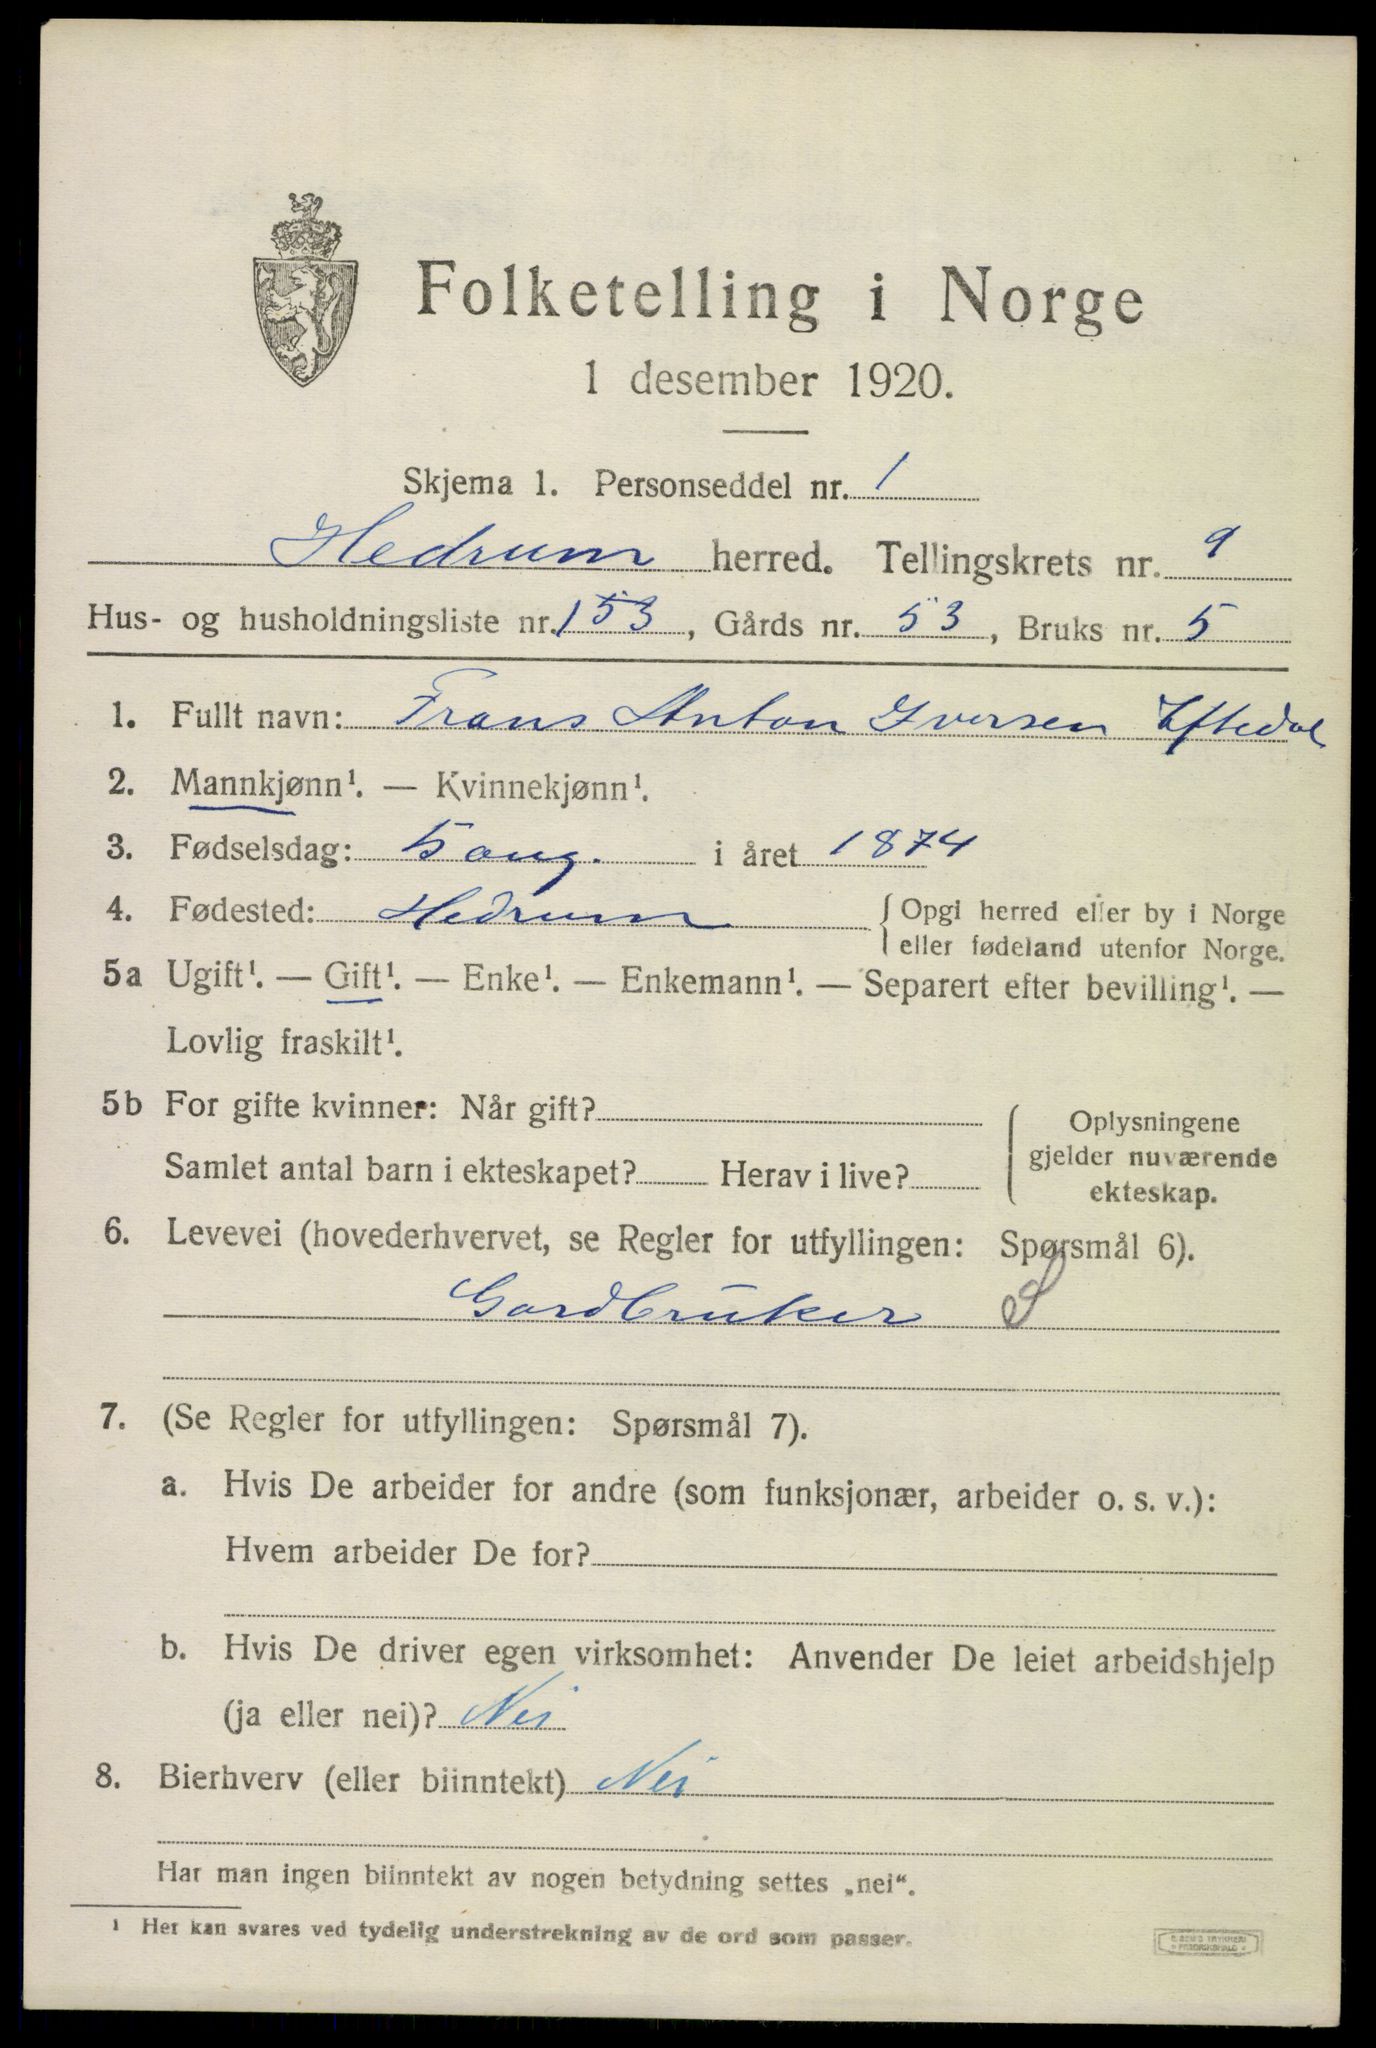 Folketelling i Norge
1 desember 1920.
Skjema 1. Personseddel nr. 1
Hedrum herred. Tellingskrets nr. 9
Hus- og husholdningsliste nr. 153, Gårds nr. 53, Bruks nr. 5
1. Fullt navn: Frans Anton Iversen Eftedal
2. Mannkjønn¹. — Kvinnekjønn¹.
3. Fødselsdag: 5 aug. i året 1874
4. Fødested: Hedrum { Opgi herred eller by i Norge
eller fødeland utenfor Norge.
5a Ugift¹. — Gift¹. — Enke¹. — Enkemann¹. — Separert efter bevilling¹. —
Lovlig fraskilt¹.
5b For gifte kvinner: Når gift?
Samlet antal barn i ekteskapet? Herav i live?
Oplysningene
gjelder nuværende
ekteskap.
6. Levevei (hovederhvervet, se Regler for utfyllingen: Spørsmål 6).
Gardbruker S
7. (Se Regler for utfyllingen: Spørsmål 7).
a. Hvis De arbeider for andre (som funksjonær, arbeider o. s. v.):
Hvem arbeider De for?
b. Hvis De driver egen virksomhet: Anvender De leiet arbeidshjelp
(ja eller nei)? Nei
8. Bierhverv (eller biinntekt) Nei
Har man ingen biinntekt av nogen betydning settes „nei“.
¹ Her kan svares ved tydelig understrekning av de ord som passer.